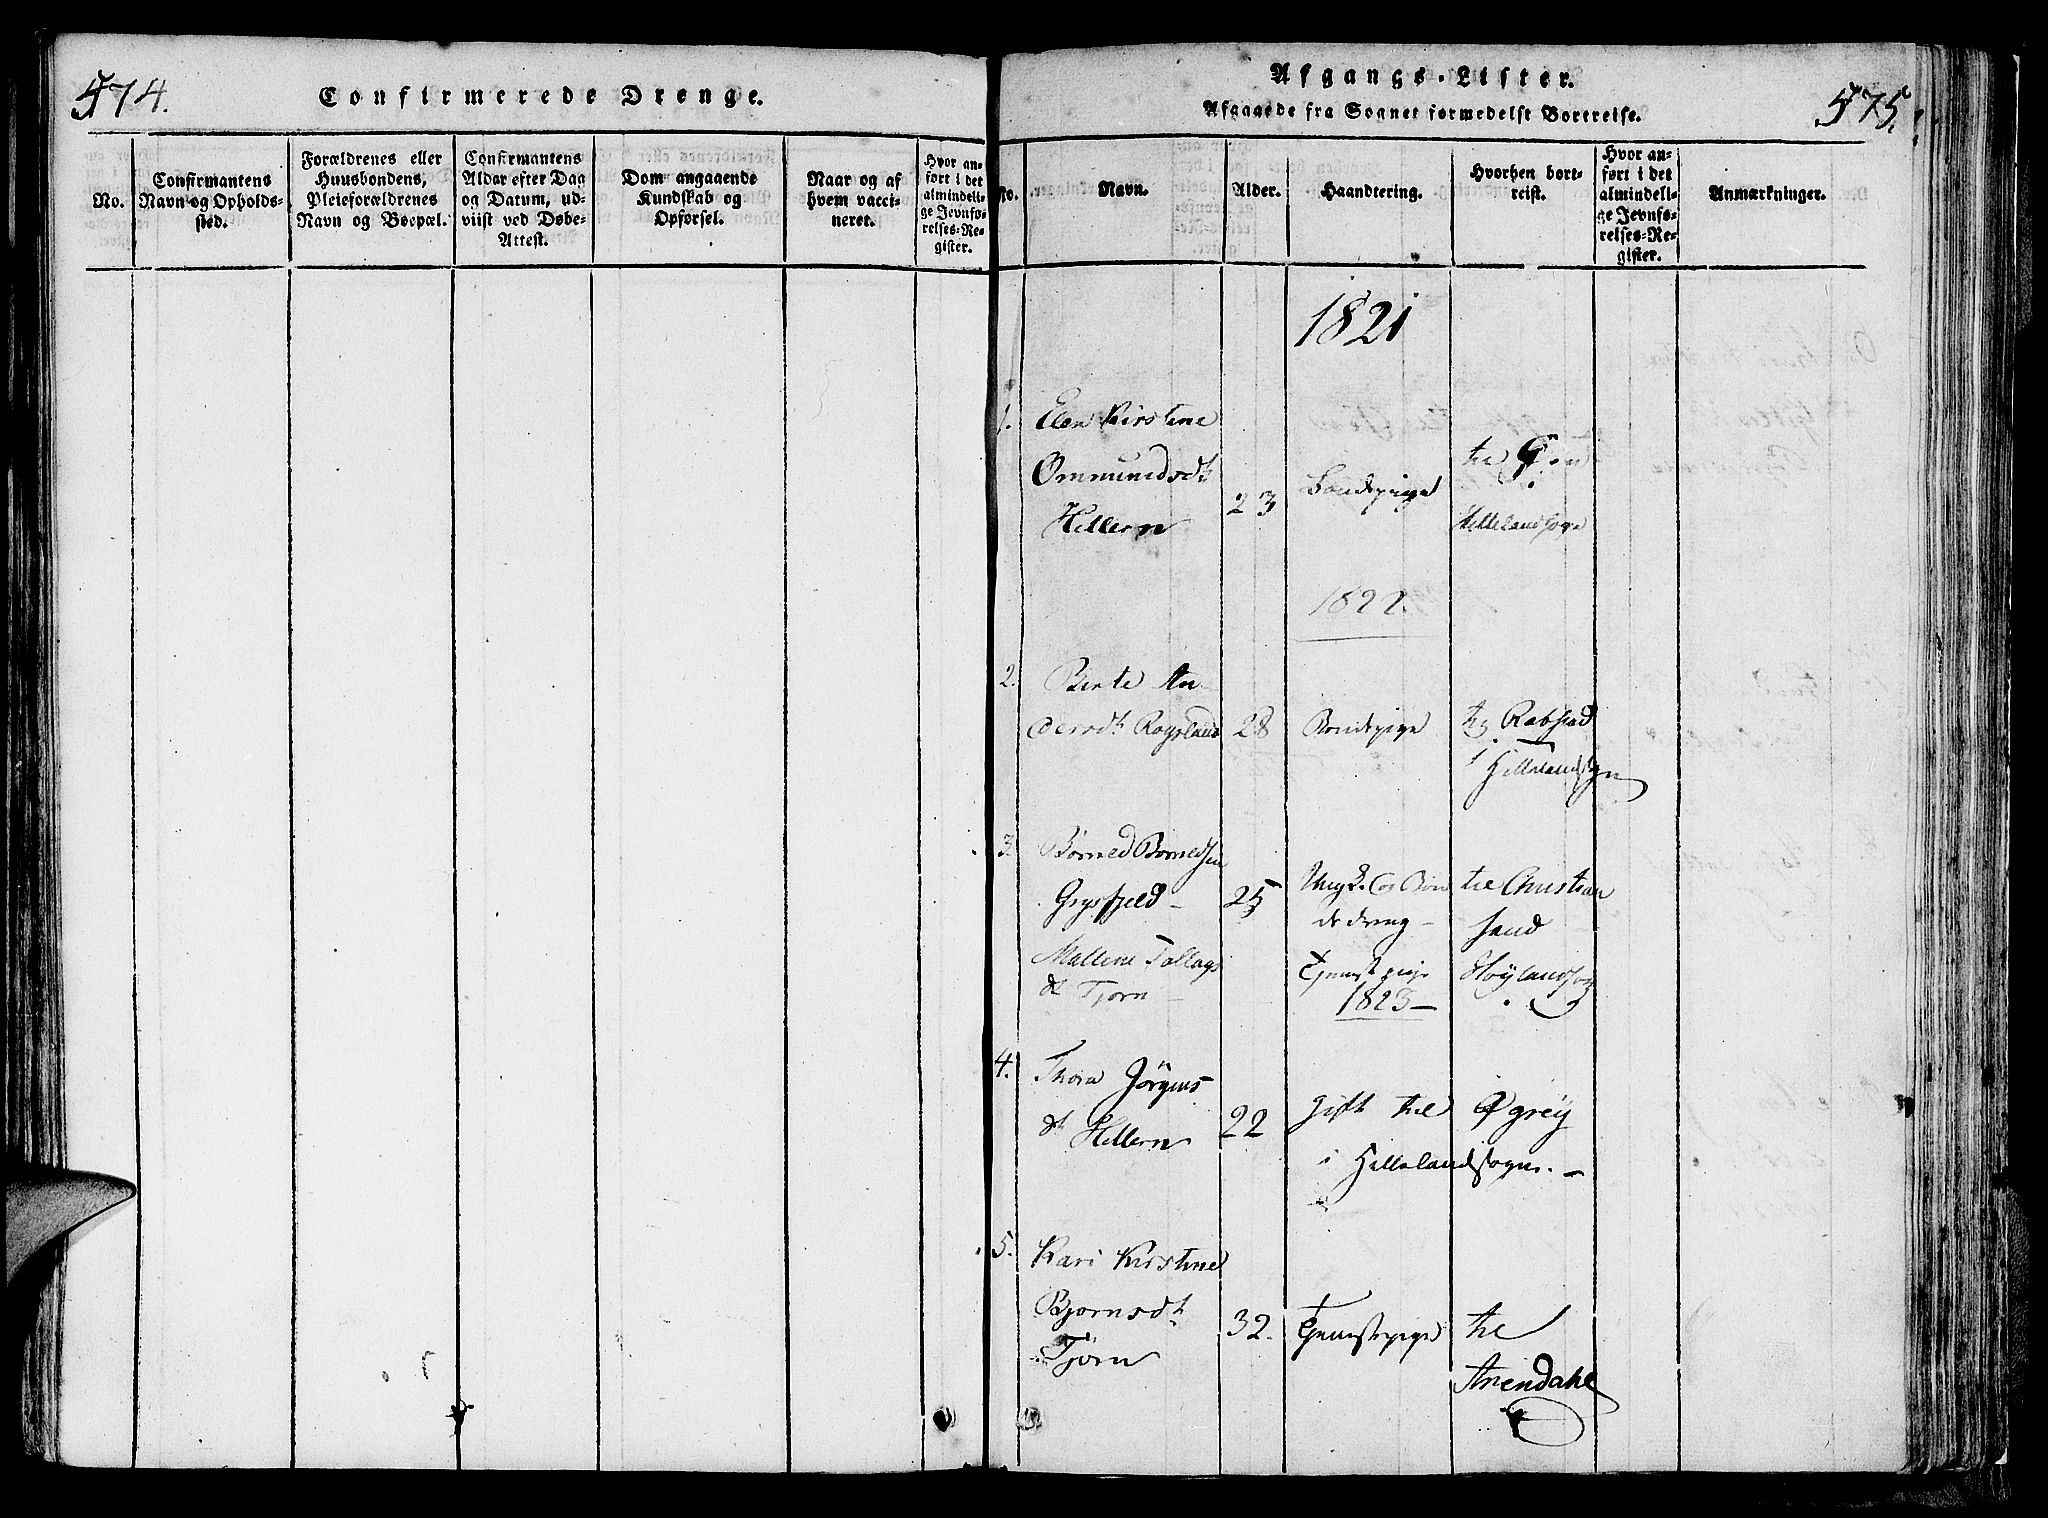 574.
Confirmerede Drenge.
No.
Confirmantens
Navn og Opholds-
sted.
Forældrenes eller
Huusbondens,
Pleieforældrenes
Navn og Boepæl.
Confirmantens
Alder efter Dag
og Datum, ud-
viist ved Døbe-
Attest.
Dom angaaende
Kundskab og
Opførsel.
Naar og af
hvem vacci-
neret.
Hvor an-
ført i det
almindeli-
ge Jevnfø-
relses-Re-
gister.
Afgangs-Lister.
Afgaaede fra Sognet formedelst Bortreise.
575.
No.
Navn.
Alder.
Haandtering.
Hvorhen bort-
reist.
Hvor an-
ført i det
almindeli-
ge Jevnfø-
relses-Re-
gister.
Anmærkninger.
1821
1. Elen Kirstine
Ommundsdt
Hellern 23 Bondepige til
Hellelandsogn
1822.
2. Berte An-
dersdt Rogsland 28 Bondepige til Rabstad
i Hellelandsogn
3. Børned Børnedsen
Grysfjeld - 25 Ung K. og Bon
dedreng - til Christian
sand
Mallene Tollags
dt Tjørn - Tjenestpige Høylandsog
1823-
4. Thora Jörgens
dt Hellern 22 gift til Øgrëy
i Hellelandsogn. -
5. Kari Kirstine
Bjørnsdt
Tjørn 32. Tjenestepige til
Arendahl